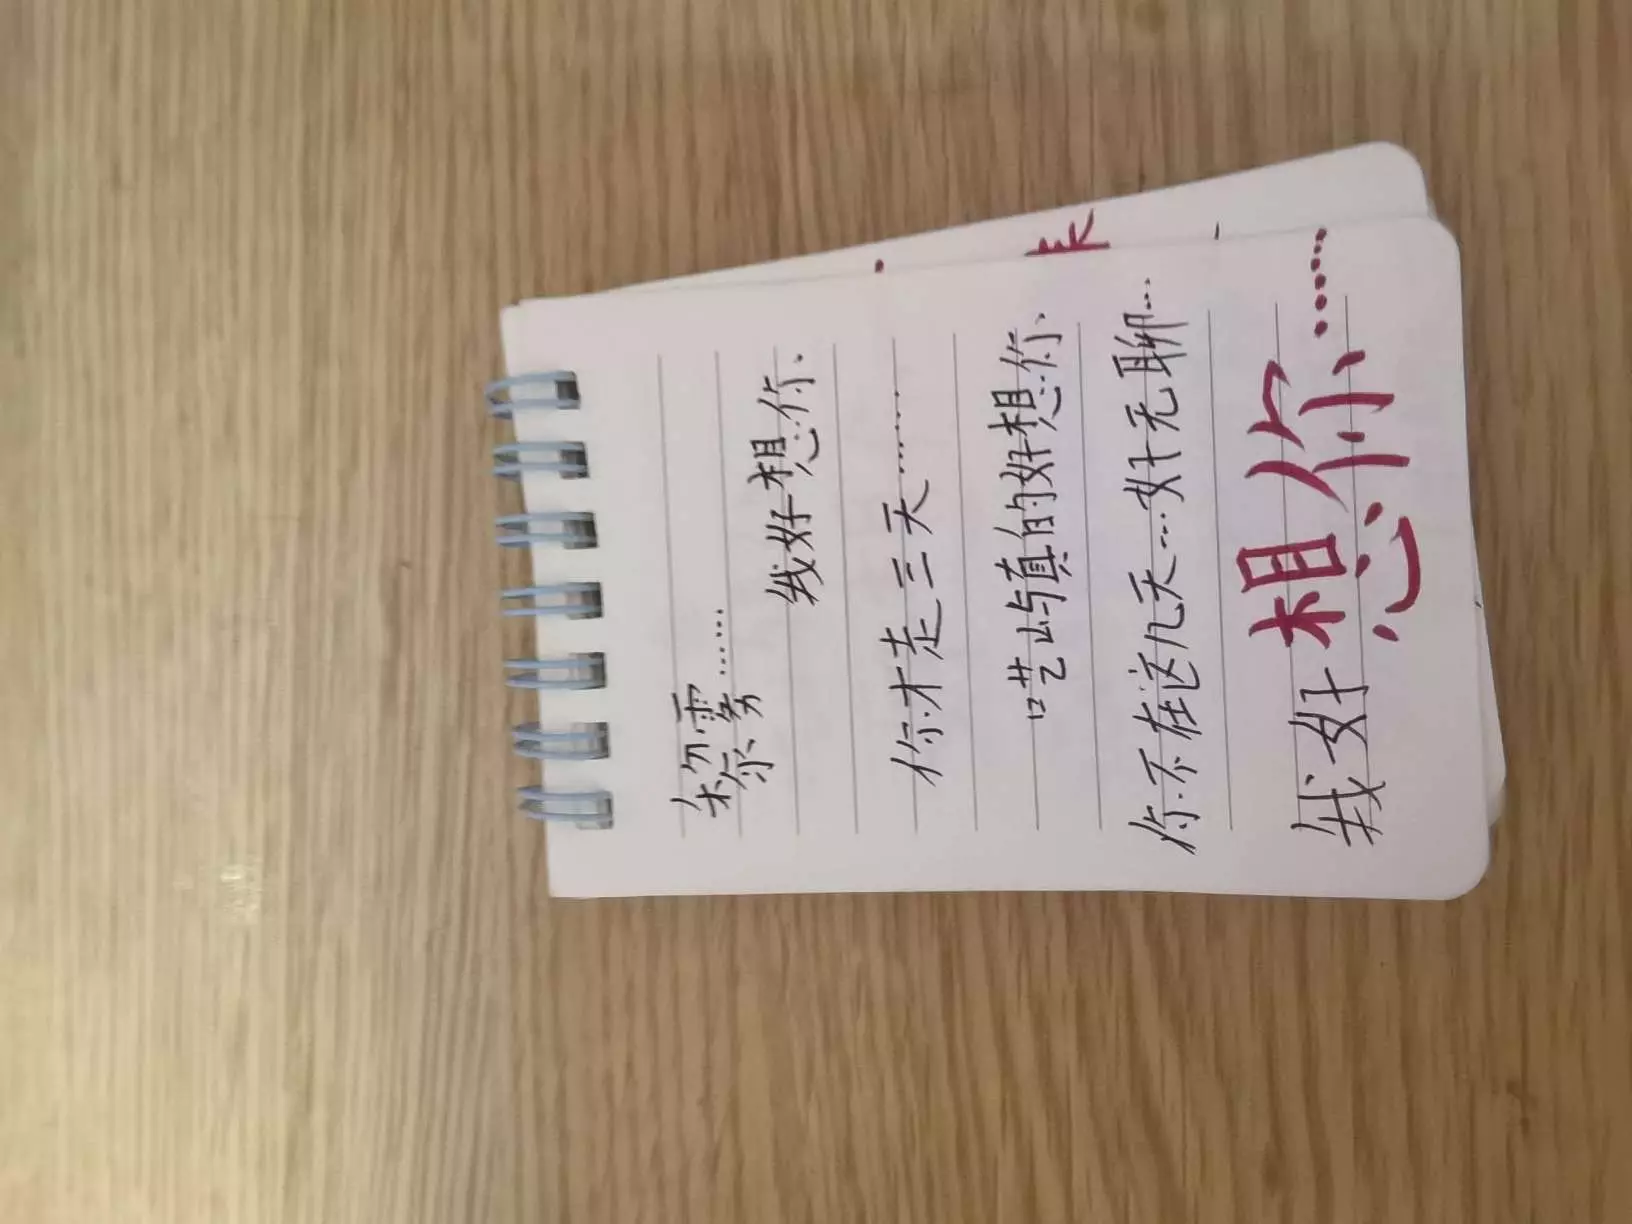 黎雾……
我好想你、
你才走三天………
呓屿真的好想你、
你不在这几天…好无聊…
我好想你……